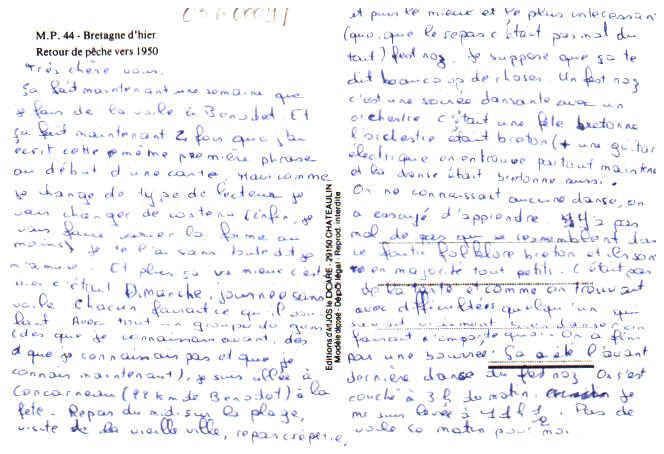 03A0009/
M.P. 44 - Bretagne d'hier
Retour de pêche vers 1950
Très chère vous.
Ça fait maintenant une semaine que
je fais de la voile à Benodet. Et
ça fait maintenant 4 fois que j'ai
écrit cette même première phrase
au début d'une carte. Mais comme
je change de type de lecteur je
vais changer de contenu (enfin, je
vais faire varier la forme au
moins). Je te l'ai sans doute dit je
m'amuse. Et plus ça va mieux c'est
c'était Dimanche, journée sans
voile chacun faisait ce qu'il
Avec tout un groupe de gens
(des que je connaissais avant, des
que je connaissais pas et que je
connais maintenant), je suis allée à
Concarneau (22 km de Benodet) à la
fête. Repas du midi sur la plage,
visite de la vieille ville, repas crêperie,
Editions d'Art JOS le DOARÉ - 29150 CHATEAULIN
Modèle déposé - Dépôt légal - Reprod. interdite
et puis le mieux et le plus interessant
(quoique le repas c'était pas mal du
tout) fest noz. Je suppose que ça te
dit beaucoup de choses. Un fest noz
c'est une soirée dansante avec un
orchestre. C'était une fête bretonne
l'orchestre était breton (+ une guitare
électrique on en trouve partout maintenant
et la danse était bretonne aussi.
On ne connaissait aucune danse, on
a essayé d'apprendre. Il y a pas
mal de pas qui se ressemblent dans
le folklore breton et ils sont
en majorité tout petits. C'était pas
de la tarte et comme on trouvait
avec difficultées quelqu'un qui
savait vraiment danser on
faisait n'importe quoi. On a fini
par une bourrée. Ça a été l'avant
dernière danse du fest noz. On s'est
couché à 3 h du matin. je
me suis levée à 11 h 1/2. Pas de
voile ce matin pour moi.